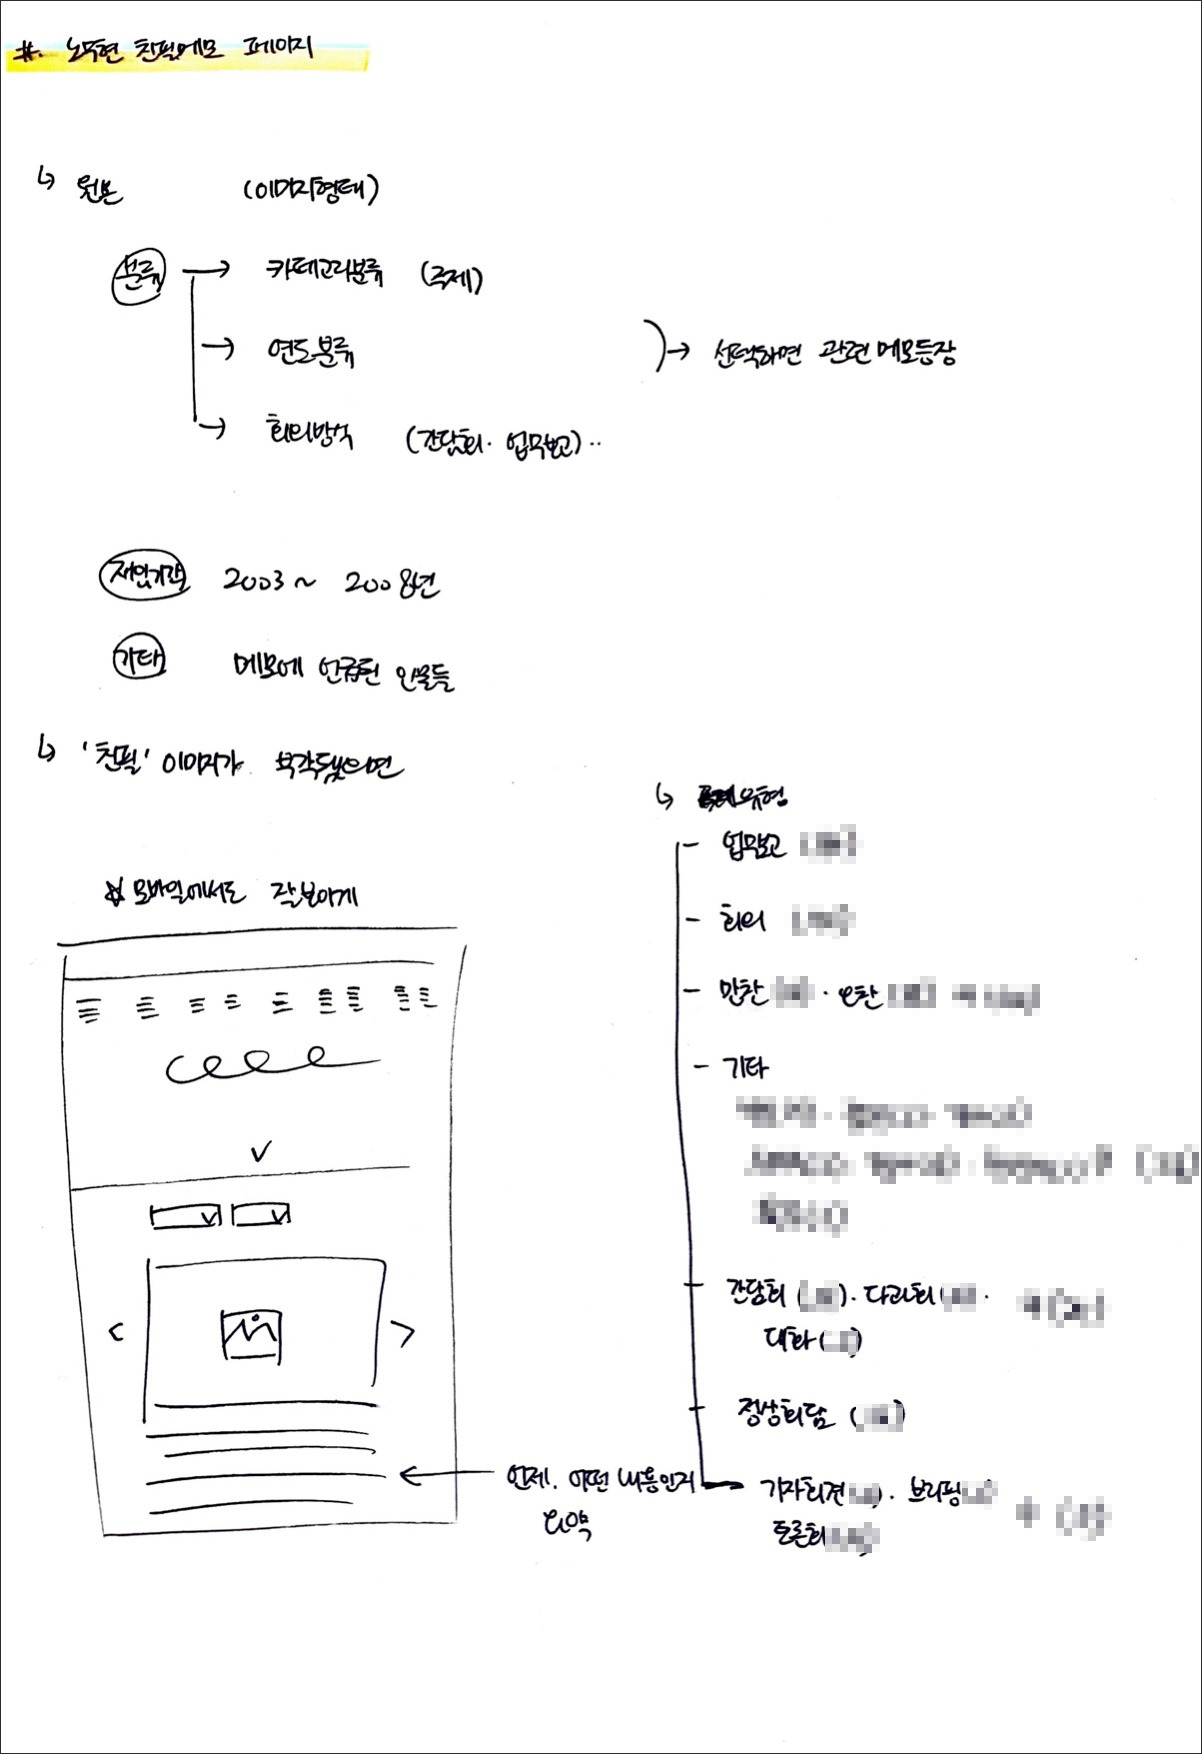 #. 노무현 친필메모 페이지
↳ 원본 (이미지형태)
분류 → 카테고리분류 (주제)
→ 연도분류
→ 선택하면 관련메모등장
→ 회의방식 (간담회. 업무보고)..
재임기간 2003 ~ 2008년
기타 메모에 언급된 인물들
↳ '친필' 이미지가 부각됐으면
☆ 모바일에서도 잘보이게
↳ 유형
- 업무보고
- 회의
- 만찬 · 오찬
- 기타
- 간담회 ( ). 다과회 ( ).
대화 ( )
- 정상회담 ( )
- 기자회견 ). 브리핑
토론회 )
← 언제. 어떤 내용인지
요약